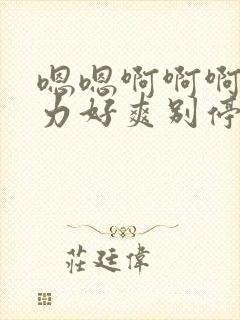 嗯嗯啊啊啊
力好爽别停
莊廷偉